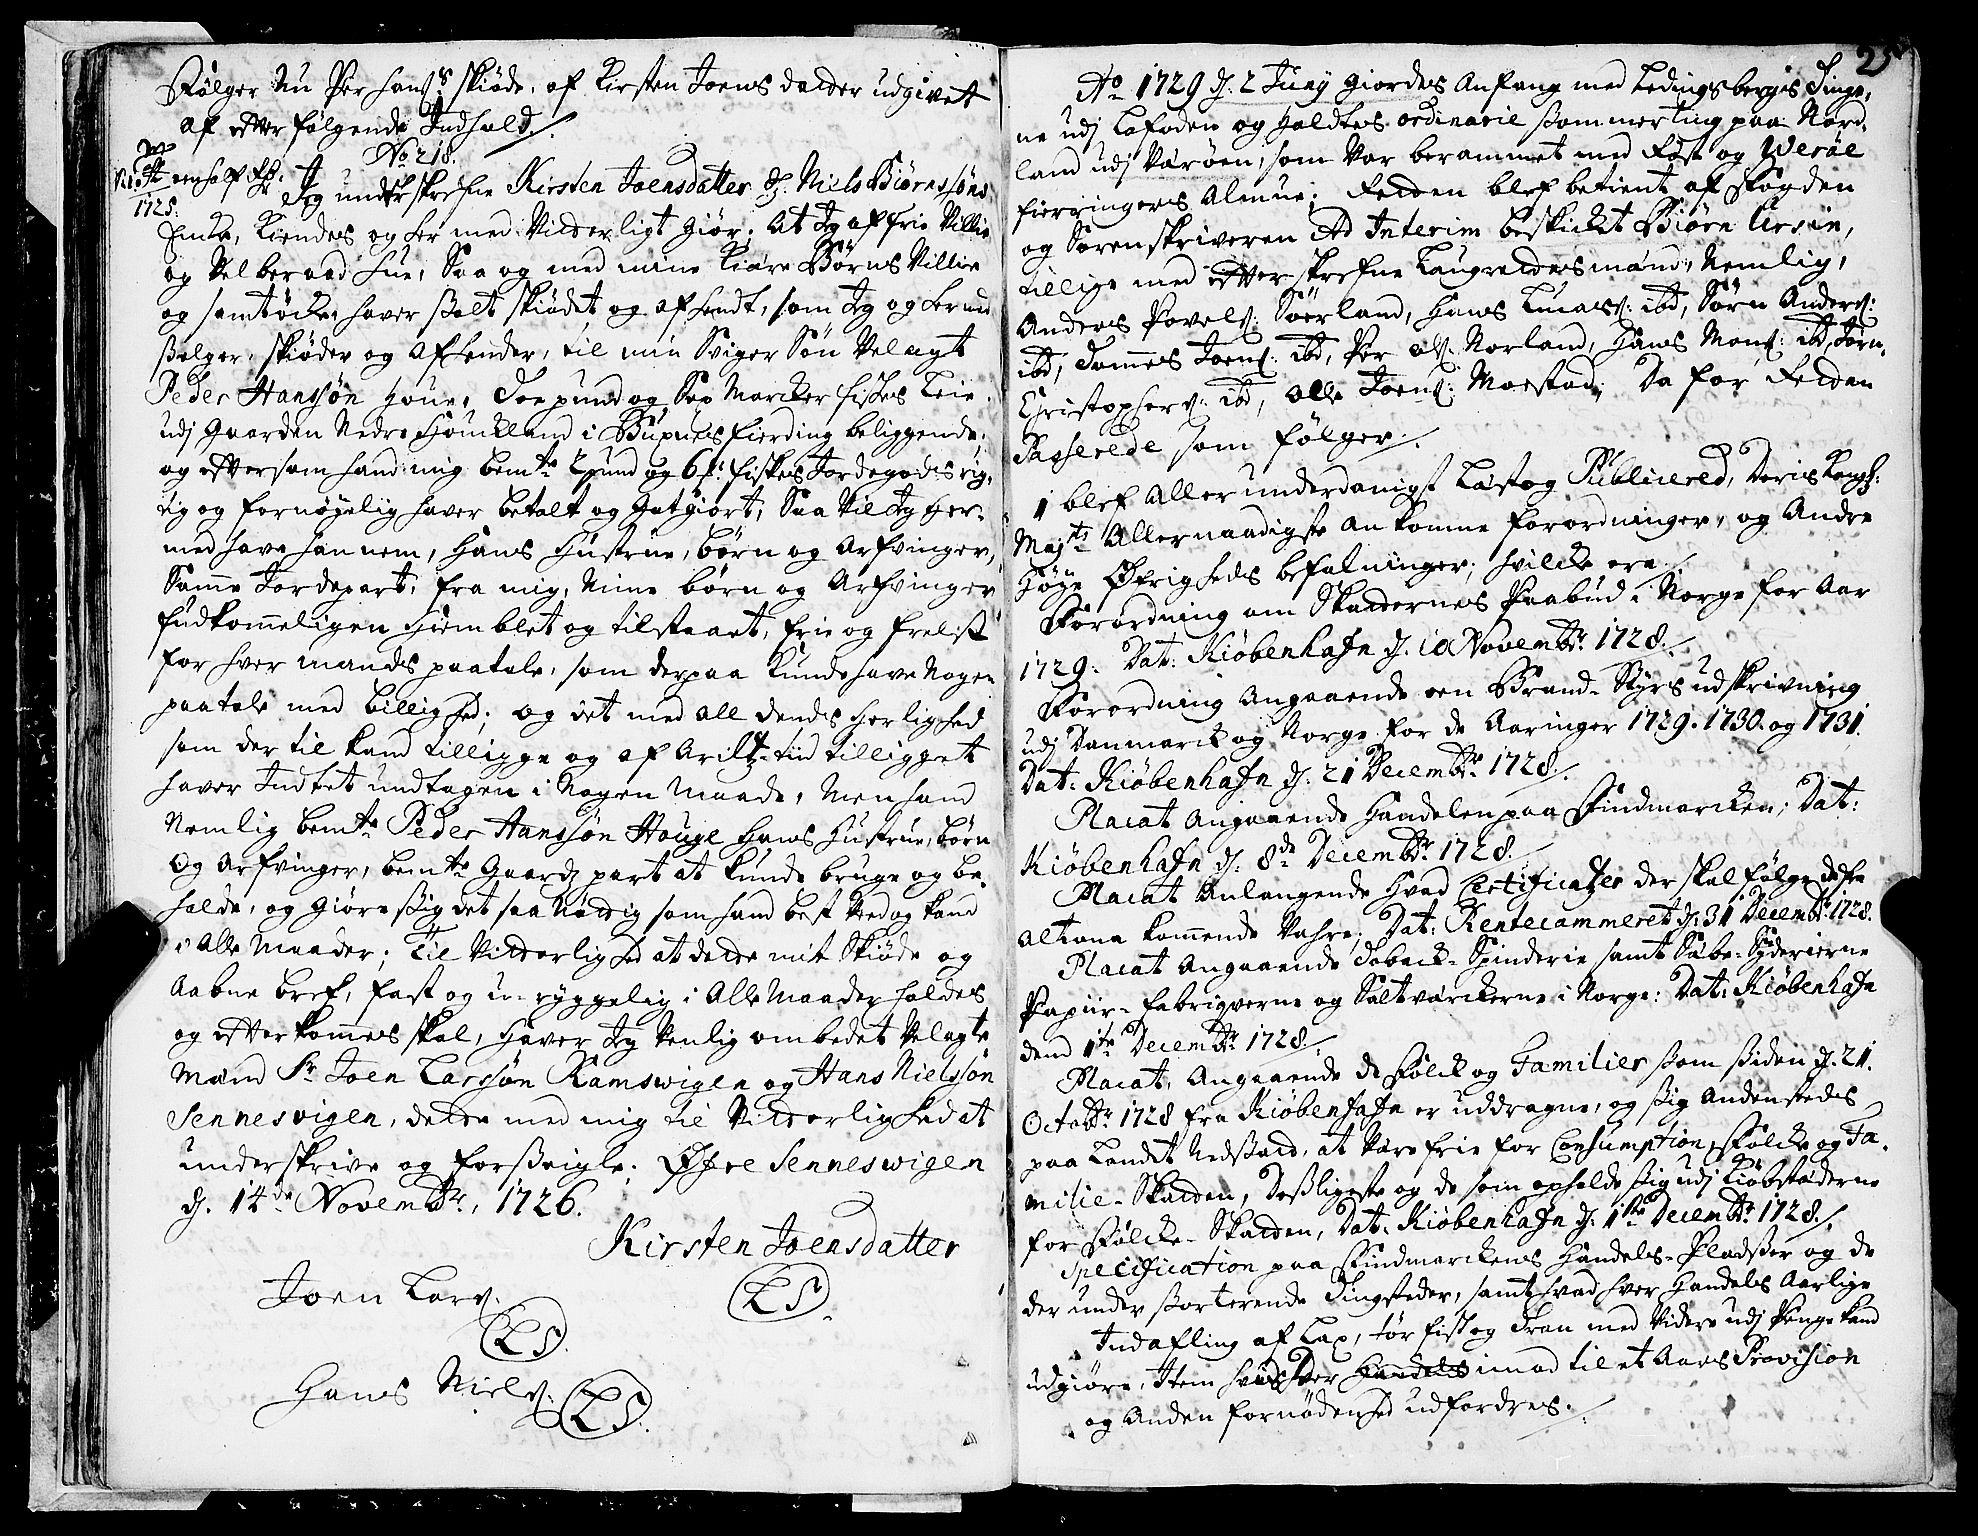 Følger Nu Per Hans: skiøde, af Kirsten Joens datter udgivet
af efter følgende Indhold./.
No 218.
1725.
Jeg underskrefne Kirsten Joensdatter Sl. Niels Biörnssöns
Enke, Kiendes og her med Vitterligt giør. At Jeg af frie Villie
og Vel beraad Hue, Saa og med mine Kiære Børns Villie
og samtöcke, haver solt skiödet og afhendt, som Jeg og hermed
sælger, skiöder og afhender, til min Sviger Sön Velagt
Peder Hanssön Houe, Toe pund og Sex Marcker fiskes Leie
udj Gaarden Nedre Hömckland i Buxnes fierding beliggende,
og eftersom hand mig bemte 2 pund og 6 : fiskes Jordegods rig,
tig og fornöyelig haver betalt og Gotgiort, Saa Vil Jeg her-
med have hannem, Hans Hustrue, börn og Arfvinger,
Samme Jordepart, fra mig, Mine börn og Arfvinger
fuldkommeligen Hiemblet og tilstaaet, frie og frelst
for hver mands paatale, som derpaa kunde have Nogen
paatale med billighed; og det med all dends herlighed
som der til kand tilligge og af Arilds-tiid tilligget
haver Indtet undtagen i Nogen maade, Men hand
Nemlig bemte Peder Hanssön Houge Hans Hustrue, börn
Og Arfvinger, bemte Gaards part at kunde bruge og be,
holde, og giöre sig det saa Nöttig som hand best Veed og kand
i Alle Maader; Til Vitterlighed at dette mit Skiöde og
Aabne bref, fast og u-ryggelig i Alle Maader holdes
og efterkommes skal, haver Jeg Venlig ombedet Velagte
Mænd Sr Joen Larssön Ramswigen og Hans Nielssön
Sennesvigen, dette med mig til Vitterlighed at
underskrive og forseigle; Öfre Senneswigen
d. 14de Novembr, 1726.
Kirsten Joensdatter
LS.
Joen Lars.
LS.
Hans Niels.
LS.
25
Ao 1729 d. 2 Juny giordes Anfang med Ledingsberges Tinge,
ne udj Lofoden og holdtes ordinarie Sommerting paa Nord,
land udj Væröen, som Var berammet med Röst og Weröe
fierringers Almue; Retten blef betient af fogden
og Sorenskriveren Ad Interim beskicket Biörn Ursin,
tillige med efterskrefne Laugrettesmænd, Nemlig,
Anders Povels: Sörland, Hans Lucas: ibd, Sörn Anders:
ibd, Tommes Joens: ibd, Per Ols: Norland, Hans Mons: ibd, Jörn
Christophers: ibd, Olle Joens: Moestad; Da for Retten
Passerede som fölger./.
1 blef Aller underdanigst Læst og Publicered, Deris Kongl:
Mayts Allernaadigste ankomne forordninger, og Andre
Höye Öfrigheds befalninger, hvilcke ere:/.
Forordning om Skatternes Paabud i Norge for Aar
1729. Dat: Kiöbenhafn d. 10 Novembr: 1728./.
Forordning Angaaende een Brand-Styrs udskrivning
udj Danmarck og Norge for de Aaringer 1729. 1730. og 1731.
Dat: Kiöbenhafn d. 21 Decembr 1728./.
Placat Angaaende Handelen paa Findmarcken; Dat:
Kiöbenhafn d. 8de Decembr 1728./.
Placat Anlangende hvad Certificatzer der skal fölge de fra
Altona kommende Vahre; Dat: Rentecammeret d. 31 Decembr 1728.
Placat Angaaende Toback-Spinderie samt Sæbe-Syderierne
Papiir-fabriqverne og Saltværckerne i Norge: Dat: Kiöbenhafn
dend 1te Decembr 1728./.
Placat, Angaaende de Folck og Familier som siden d. 21.
Octobr 1728 fra Kiöbenhafn er uddragne, og sig Andenstedes
paa Landet Nedsadt, at Være frie for Consumption, Folcke og Fa,
milie-Skatten, desligeste og de som opholde sig udj Kiöbstæderne
for Folcke-Skatten, Dat: Kiöbenhafn d. 1te Decembr 1728./.
Specification paa Findmarckens Handels-Pladser og de
der under Sorterende Tingsteder, samt hvad hver Handels Aarlige
Indafling af Lax, tör fisk og Tran med Videre udj Penge kand
udgiöre, Item hvis der Handels imod til et Aars Provision
og Anden fornödenhed udfordres./.